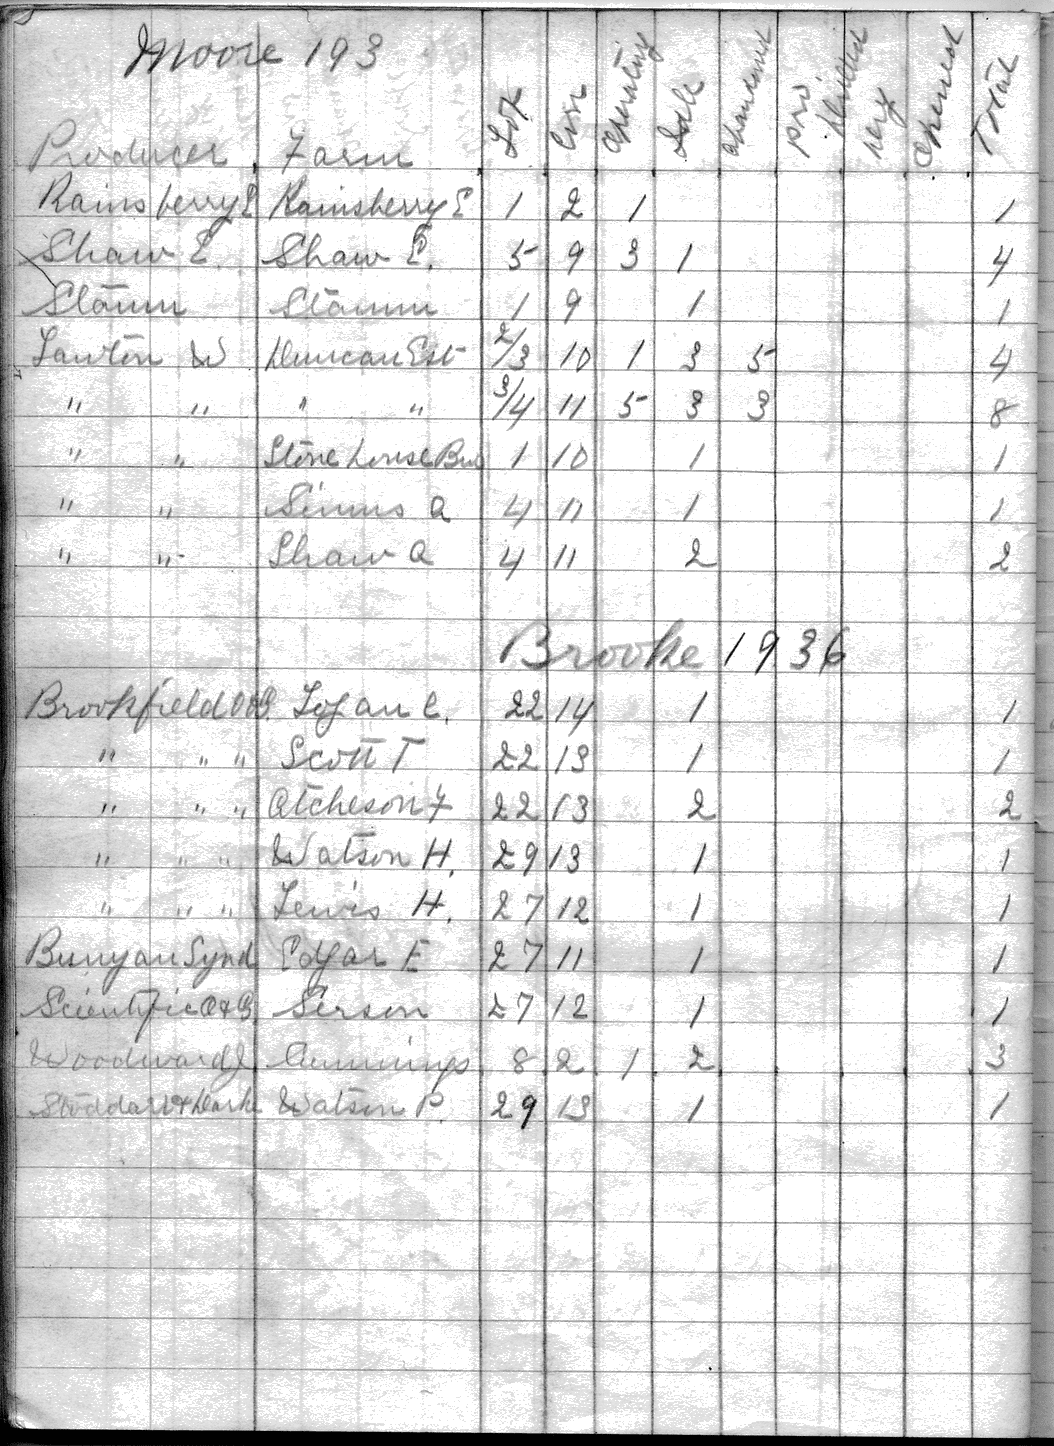 Moore 193
Producer Farm Lot Con Operating Idle abandoned pro Drilled new Opened Total
Rainsberry E Rainsberry E 1 2 1 1
Shaw E. Shaw E. 5 9 3 1 4
Stamm Stamm 1 9 1 1
Lawton W Duncan Est 2/3 10 1 3 5 4
" " " " 3/4 11 5 3 3 8
" " Stone house 1 10 1 1
" " Simms A 4 11 1 1
" " Shaw A 4 11 2 2
Brooke 1936
Brookfield O&G. Logan C. 22 14 1 1
" " " Scott T 22 13 1 1
" " " Atcheson F 22 13 2 2
" " " Watson H. 29 13 1 1
" " " Lewis H. 27 12 1 1
Bunyan Synd Edgar E 27 11 1 1
Scientific O&G. Serson 27 12 1 1
Woodward J Cummings 8 2 1 2 3
Stoddart & Watson P. 29 13 1 1